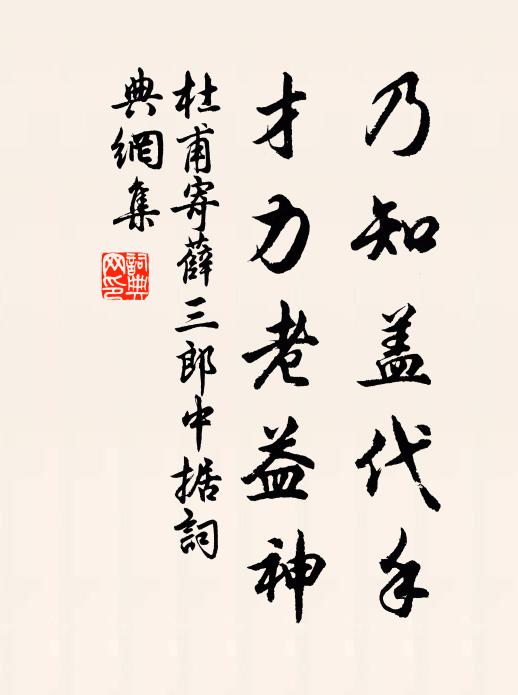 乃知盖代手
才力老益神
杜甫寄薛三郎中据詞
典網集
詞典网印